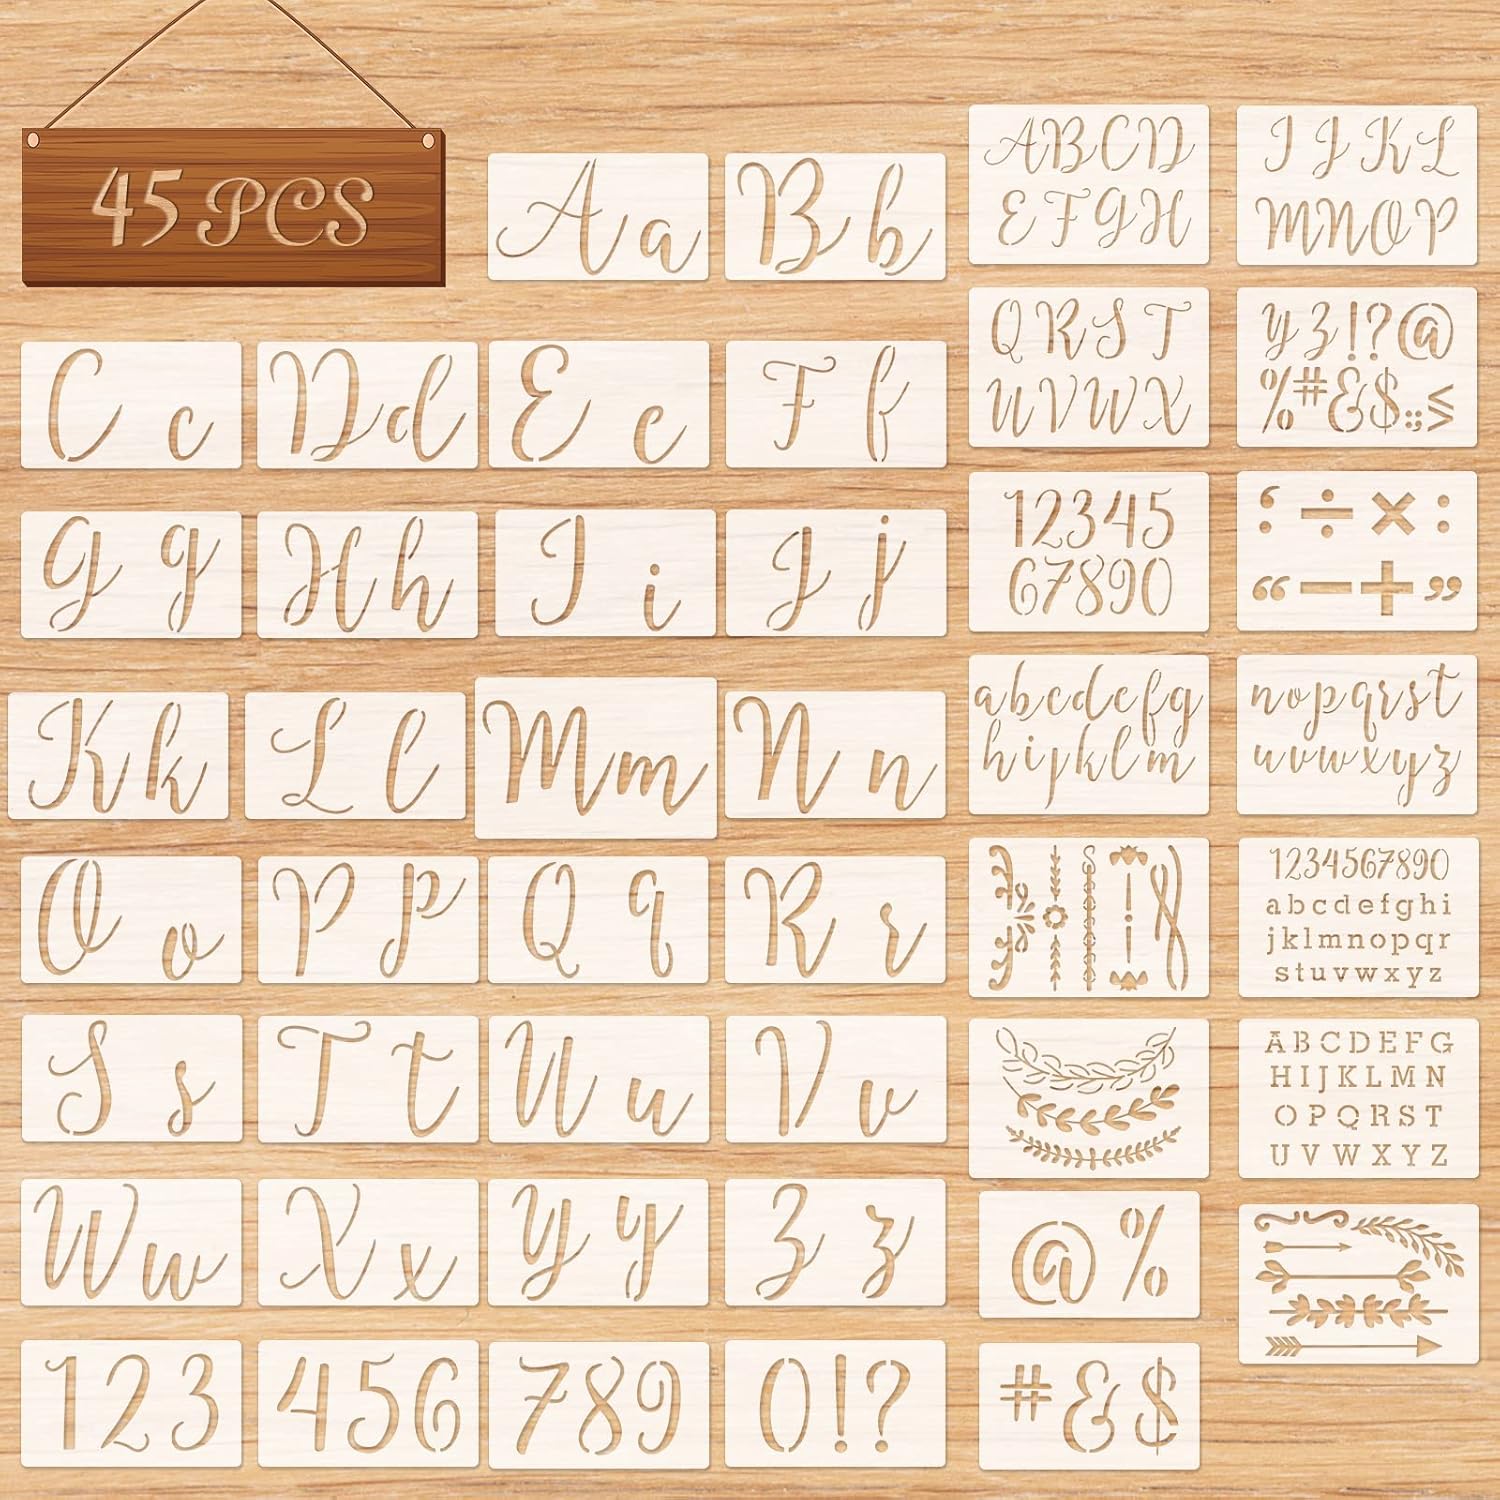 45 PCS
Aa
Bb
Cc
Dd
Ee
Ff
Gg
Hh
Ii
Jj
Kk
Ll
Mm
Nn
Oo
Pp
Qq
Rr
Ss
Tt
Uu
Vv
Ww
Xx
Yy
Zz
123
456
789
0!?
ABCD
EFGH
IJKL
MNOP
QRST
UVWX
YZ!?@
%#&$:;≤
12345
67890
‘÷×:
“−+”
abcdefg
hijklm
nopqrst
uvwxyz
1234567890
abcdefghi
jklmnopqr
stuvwxyz
ABCDEFG
HIJKLMN
OPQRST
UVWXYZ
@%
#&$